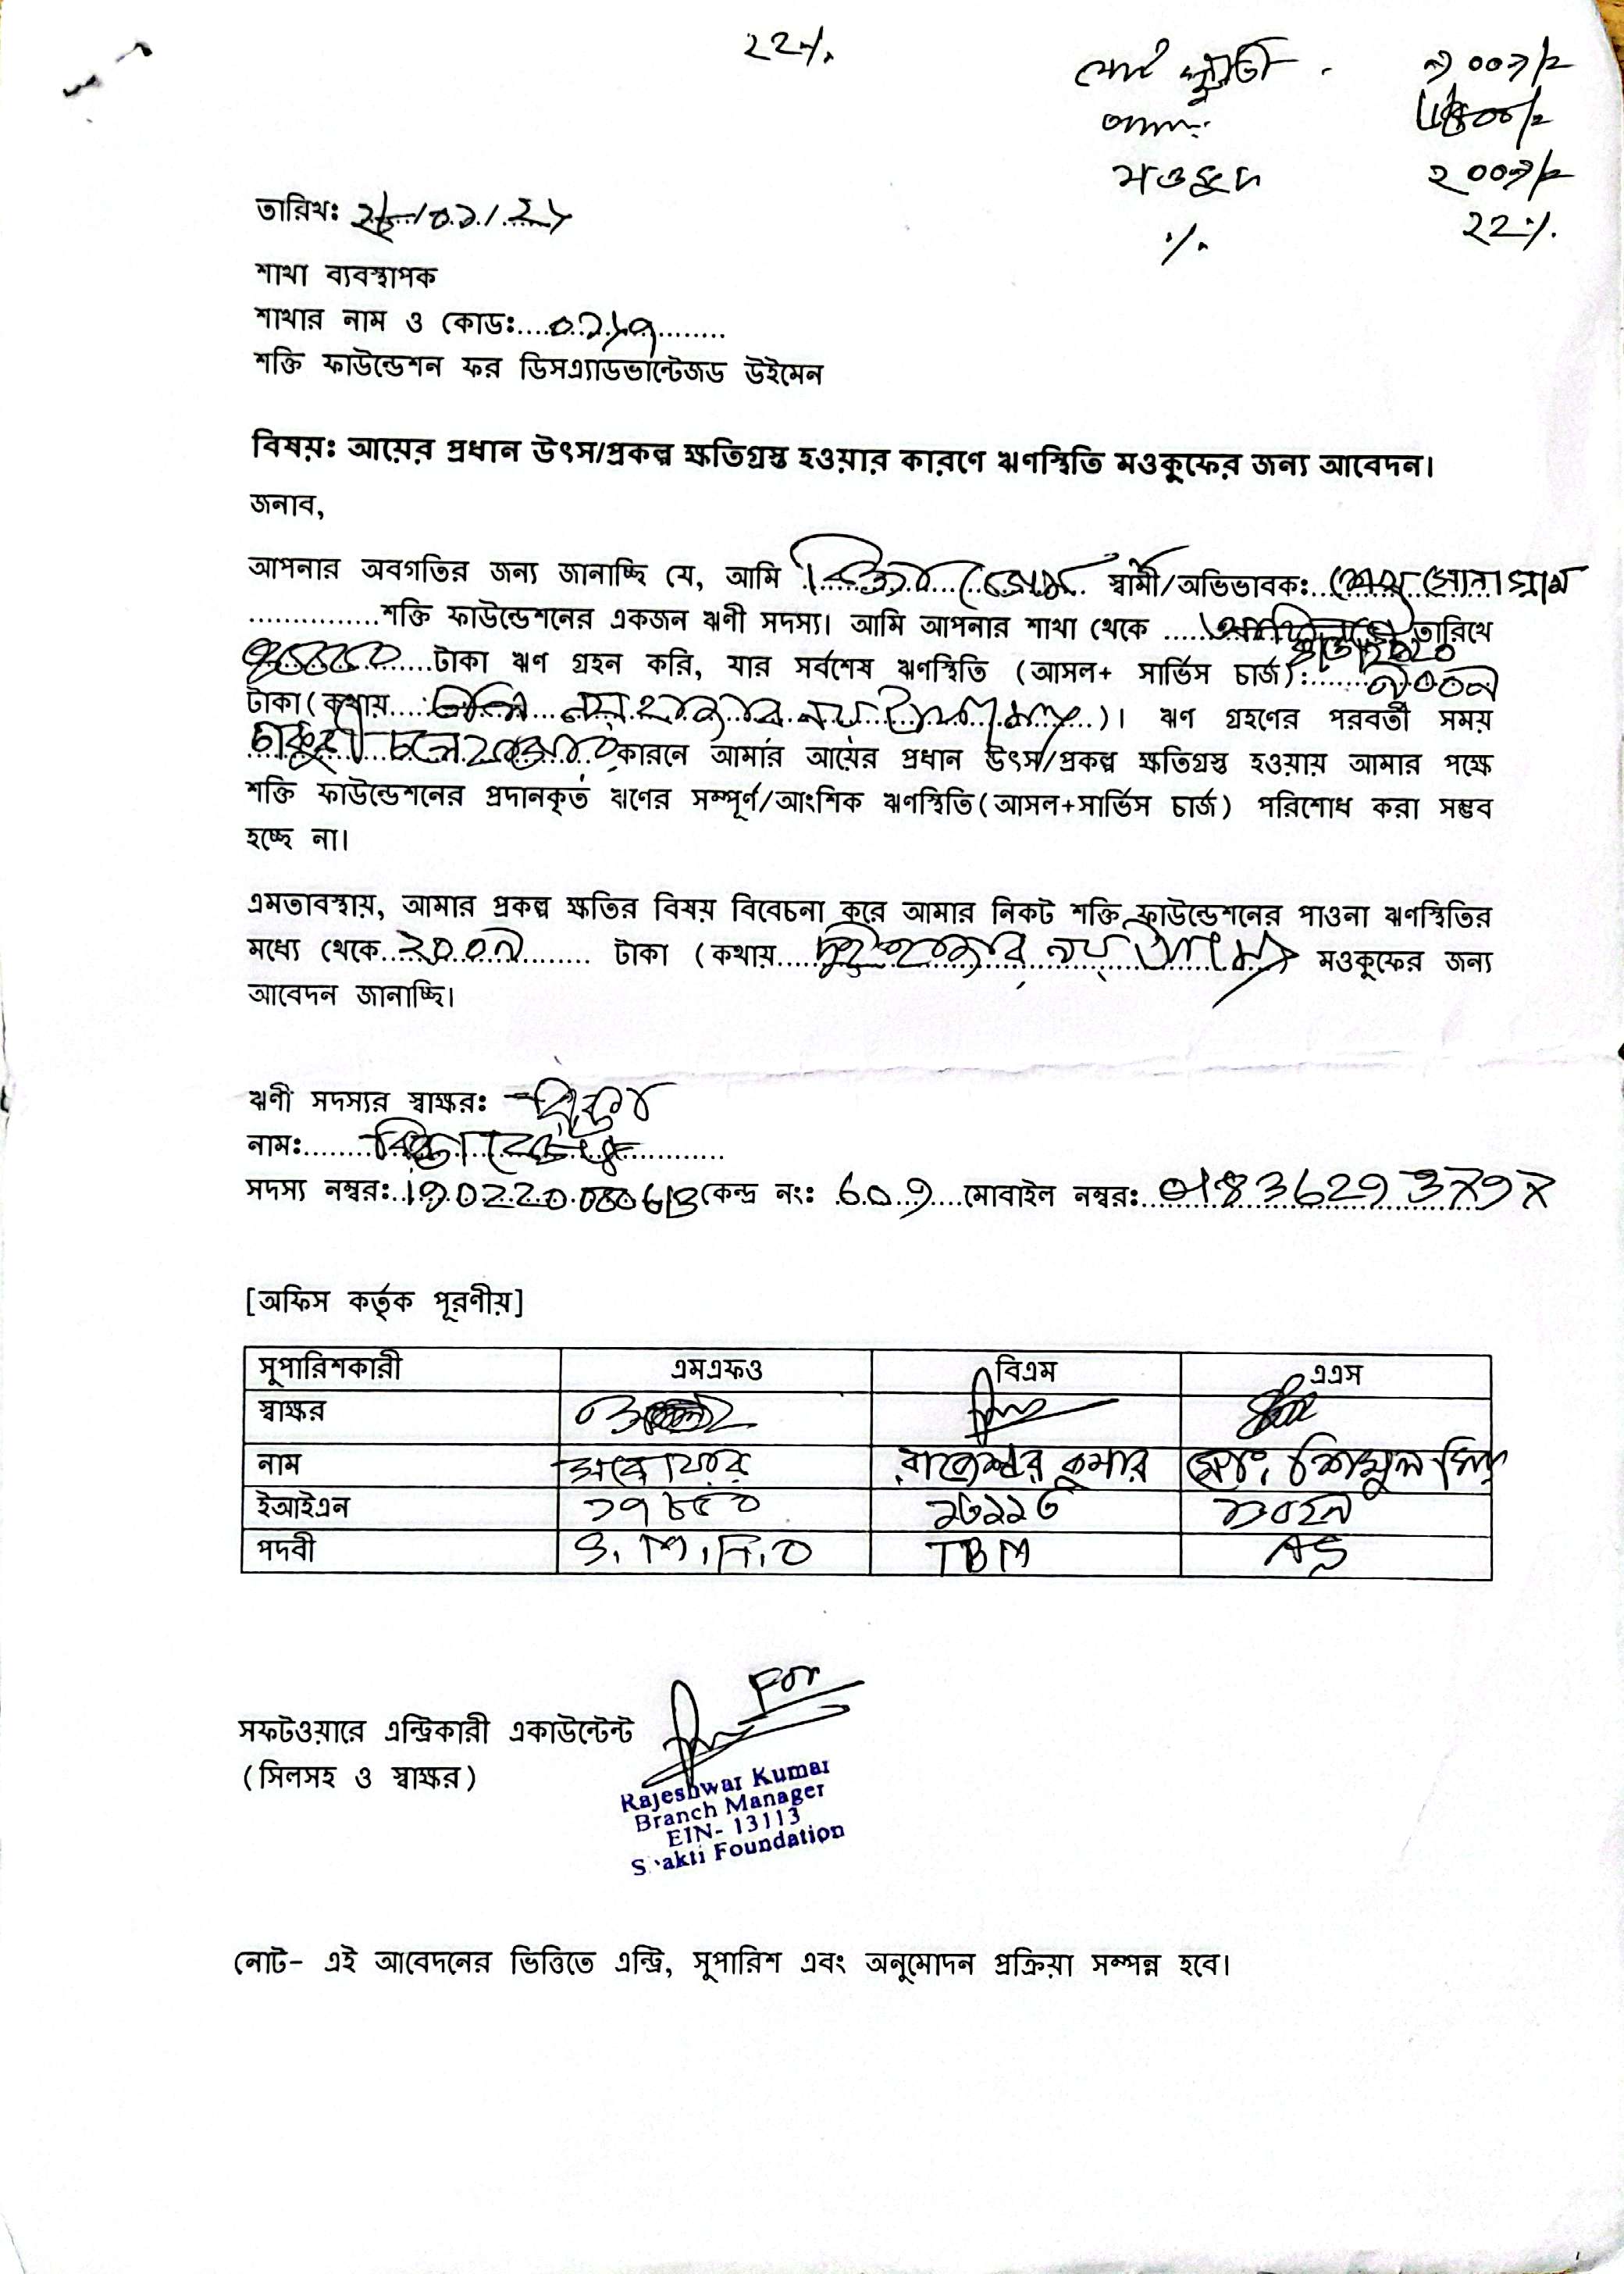 ২২%
৯০০৯/=
মওকুফ ২০০৯/=
% ২২%
তারিখঃ ২৮/০১/২৫
শাখা ব্যবস্থাপক
শাখার নাম ও কোডঃ....০১৯৭........
শক্তি ফাউন্ডেশন ফর ডিসএ্যাডভান্টেজড উইমেন
বিষয়ঃ আয়ের প্রধান উৎস/প্রকল্প ক্ষতিগ্রস্ত হওয়ার কারণে ঋণস্থিতি মওকুফের জন্য আবেদন।
জনাব,
আপনার অবগতির জন্য জানাচ্ছি যে, আমি স্বামী/অভিভাবকঃ
...............শক্তি ফাউন্ডেশনের একজন ঋণী সদস্য। আমি আপনার শাখা থেকে তারিখে
টাকা ঋণ গ্রহন করি, যার সর্বশেষ ঋণস্থিতি (আসল+ সার্ভিস চার্জ):......৯০০৯
টাকা(কথায় নয় হাজার নয় )। ঋণ গ্রহণের পরবর্তী সময়
কারনে আমার আয়ের প্রধান উৎস/প্রকল্প ক্ষতিগ্রস্ত হওয়ায় আমার পক্ষে
শক্তি ফাউন্ডেশনের প্রদানকৃত ঋণের সম্পূর্ণ/আংশিক ঋণস্থিতি(আসল+সার্ভিস চার্জ) পরিশোধ করা সম্ভব
হচ্ছে না।
এমতাবস্থায়, আমার প্রকল্প ক্ষতির বিষয় বিবেচনা করে আমার নিকট শক্তি ফাউন্ডেশনের পাওনা ঋণস্থিতির
মধ্যে থেকে..২০০৯....... টাকা (কথায়....দুই হাজার নয় মওকুফের জন্য
আবেদন জানাচ্ছি।
ঋণী সদস্যর স্বাক্ষরঃ
নামঃ
সদস্য নম্বরঃ কেন্দ্র নংঃ 607 মোবাইল নম্বরঃ
[অফিস কর্তৃক পূরণীয়]
সুপারিশকারী এমএফও বিএম এএস
স্বাক্ষর
নাম রাজেশ্বর কুমার মোঃ শিমুল
ইআইএন ১৭৮৫০ ১৩১১৩
পদবী S.M.F.O TBM AS
For
সফটওয়ারে এন্ট্রিকারী একাউন্টেন্ট
(সিলসহ ও স্বাক্ষর)
Rajeshwar Kumar
Branch Manager
EIN- 13113
Shakti Foundation
নোট- এই আবেদনের ভিত্তিতে এন্ট্রি, সুপারিশ এবং অনুমোদন প্রক্রিয়া সম্পন্ন হবে।